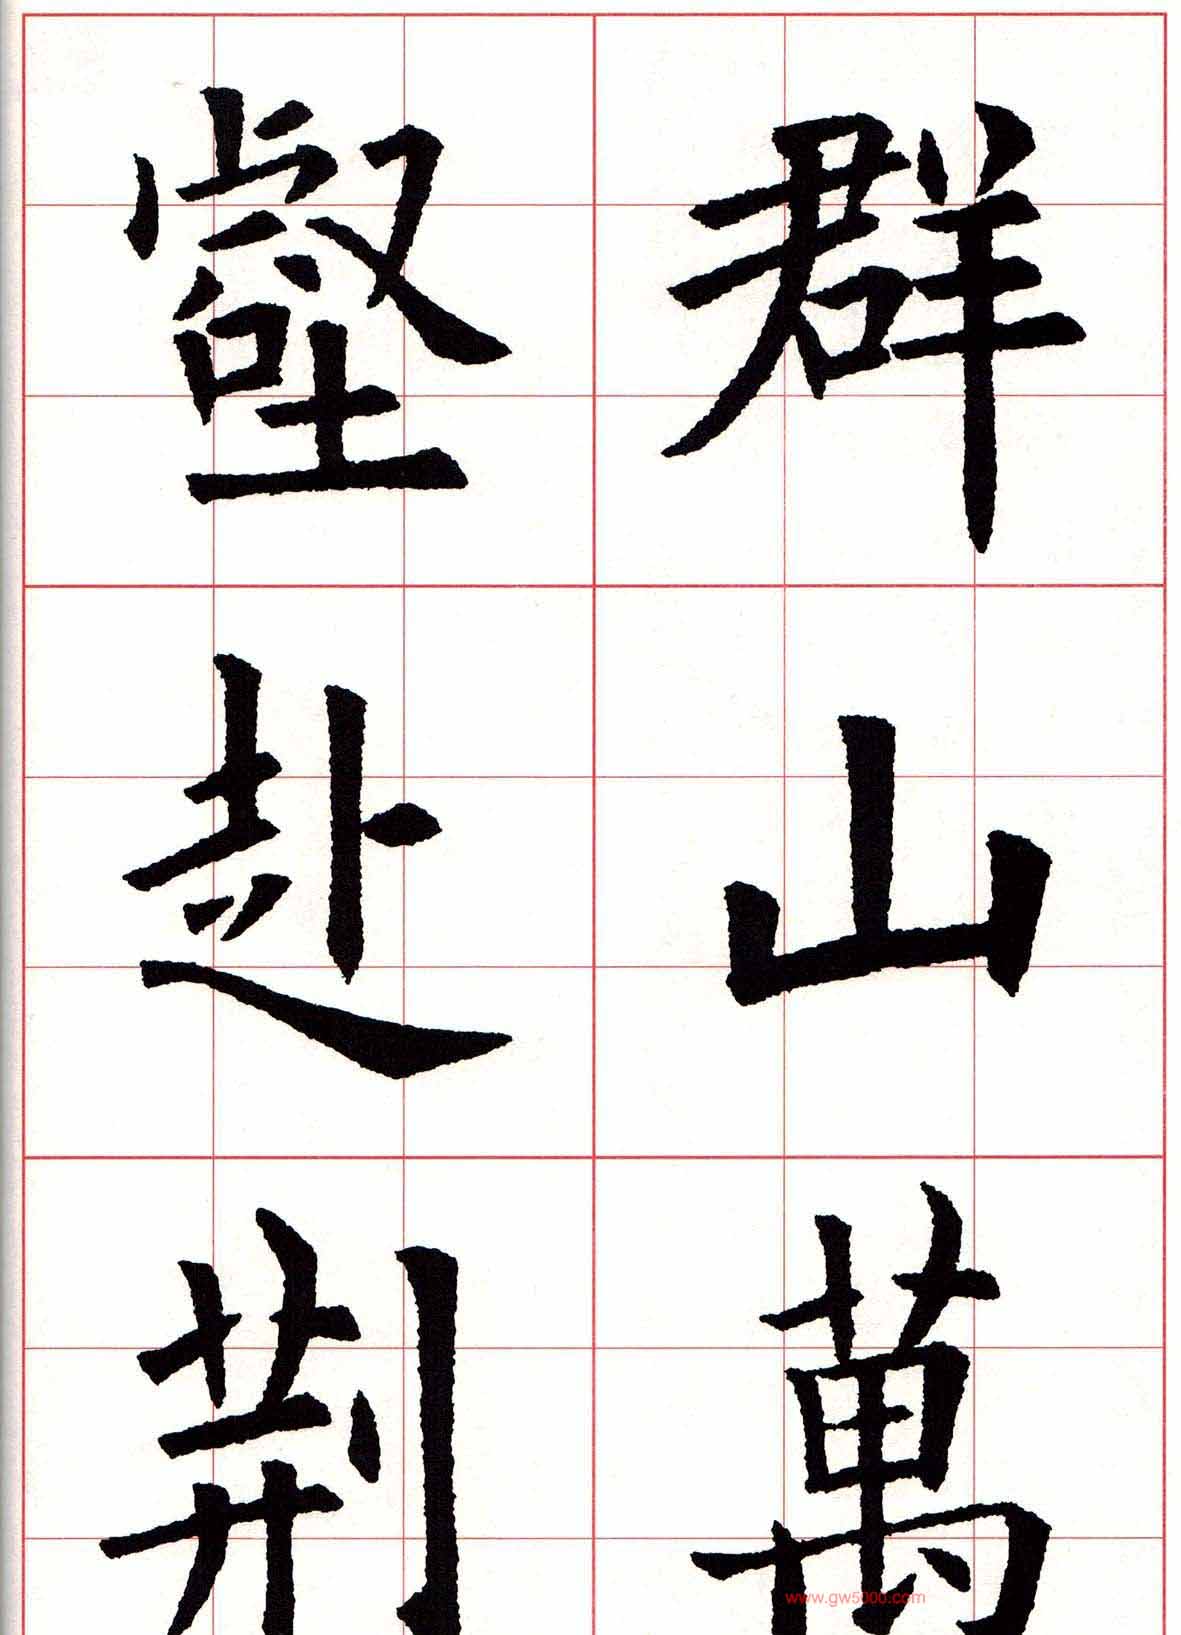 群山萬
壑赴荆
www.gw5000.com